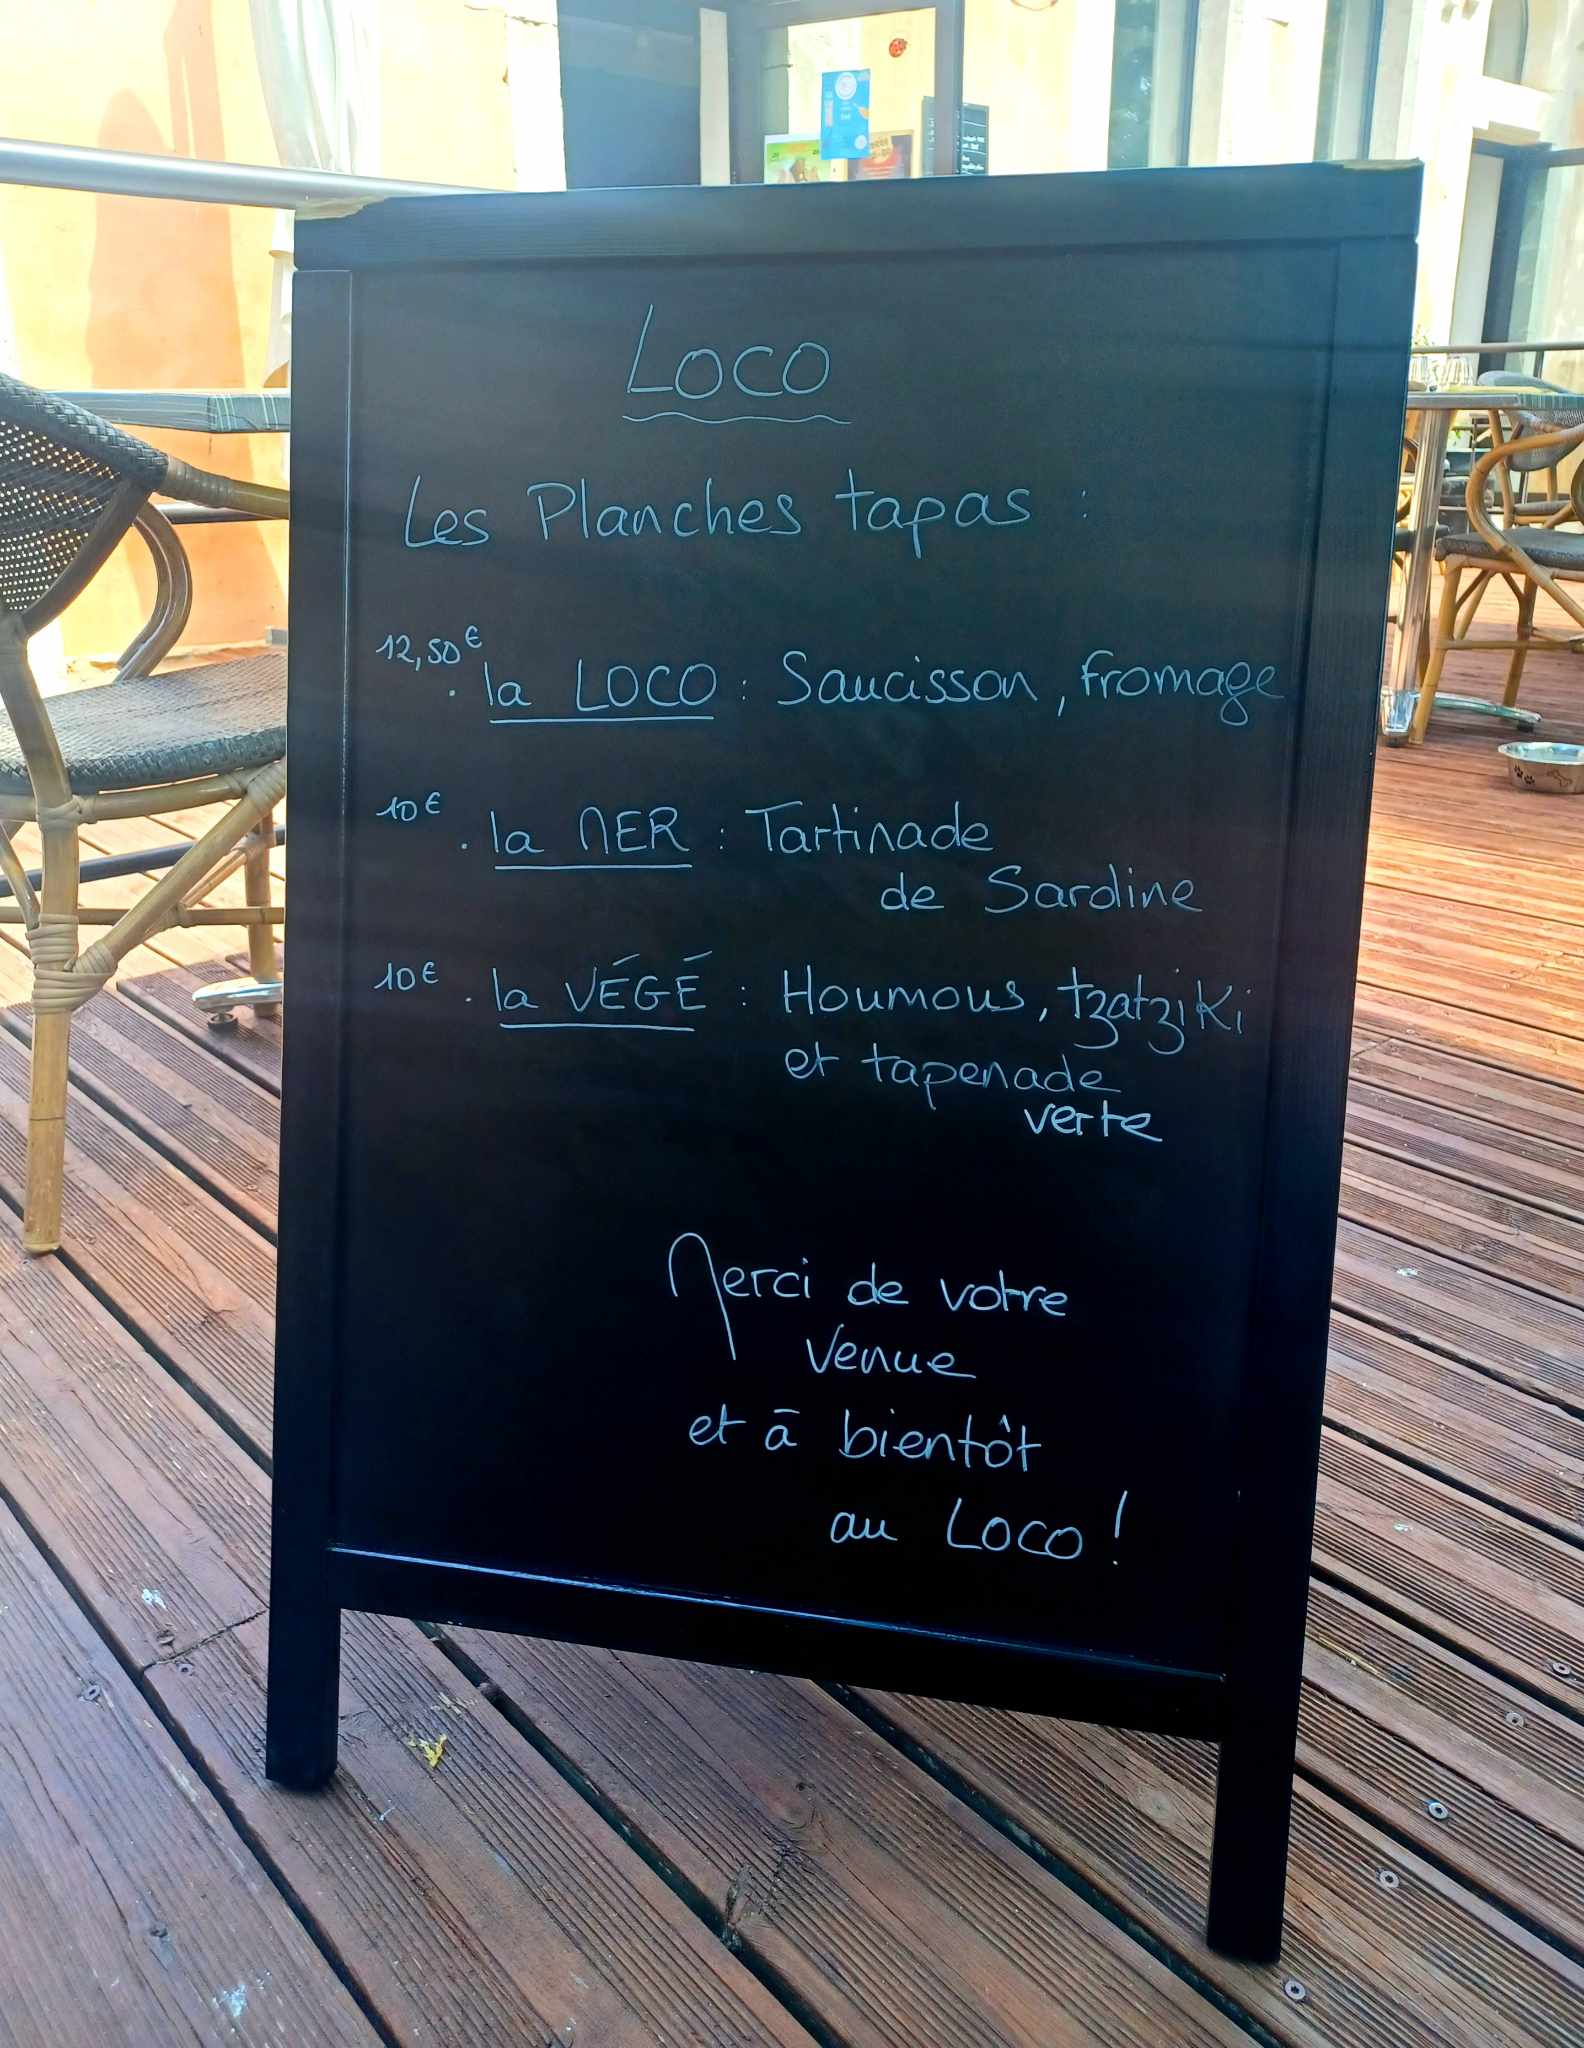 LOCO
Les Planches tapas :
12,50€ . la LOCO : Saucisson, fromage
10€ . la MER : Tartinade
de Sardine
10€ . la VÉGÉ : Houmous, tzatziki
et tapenade
verte
Merci de votre
venue
et à bientôt
au Loco !